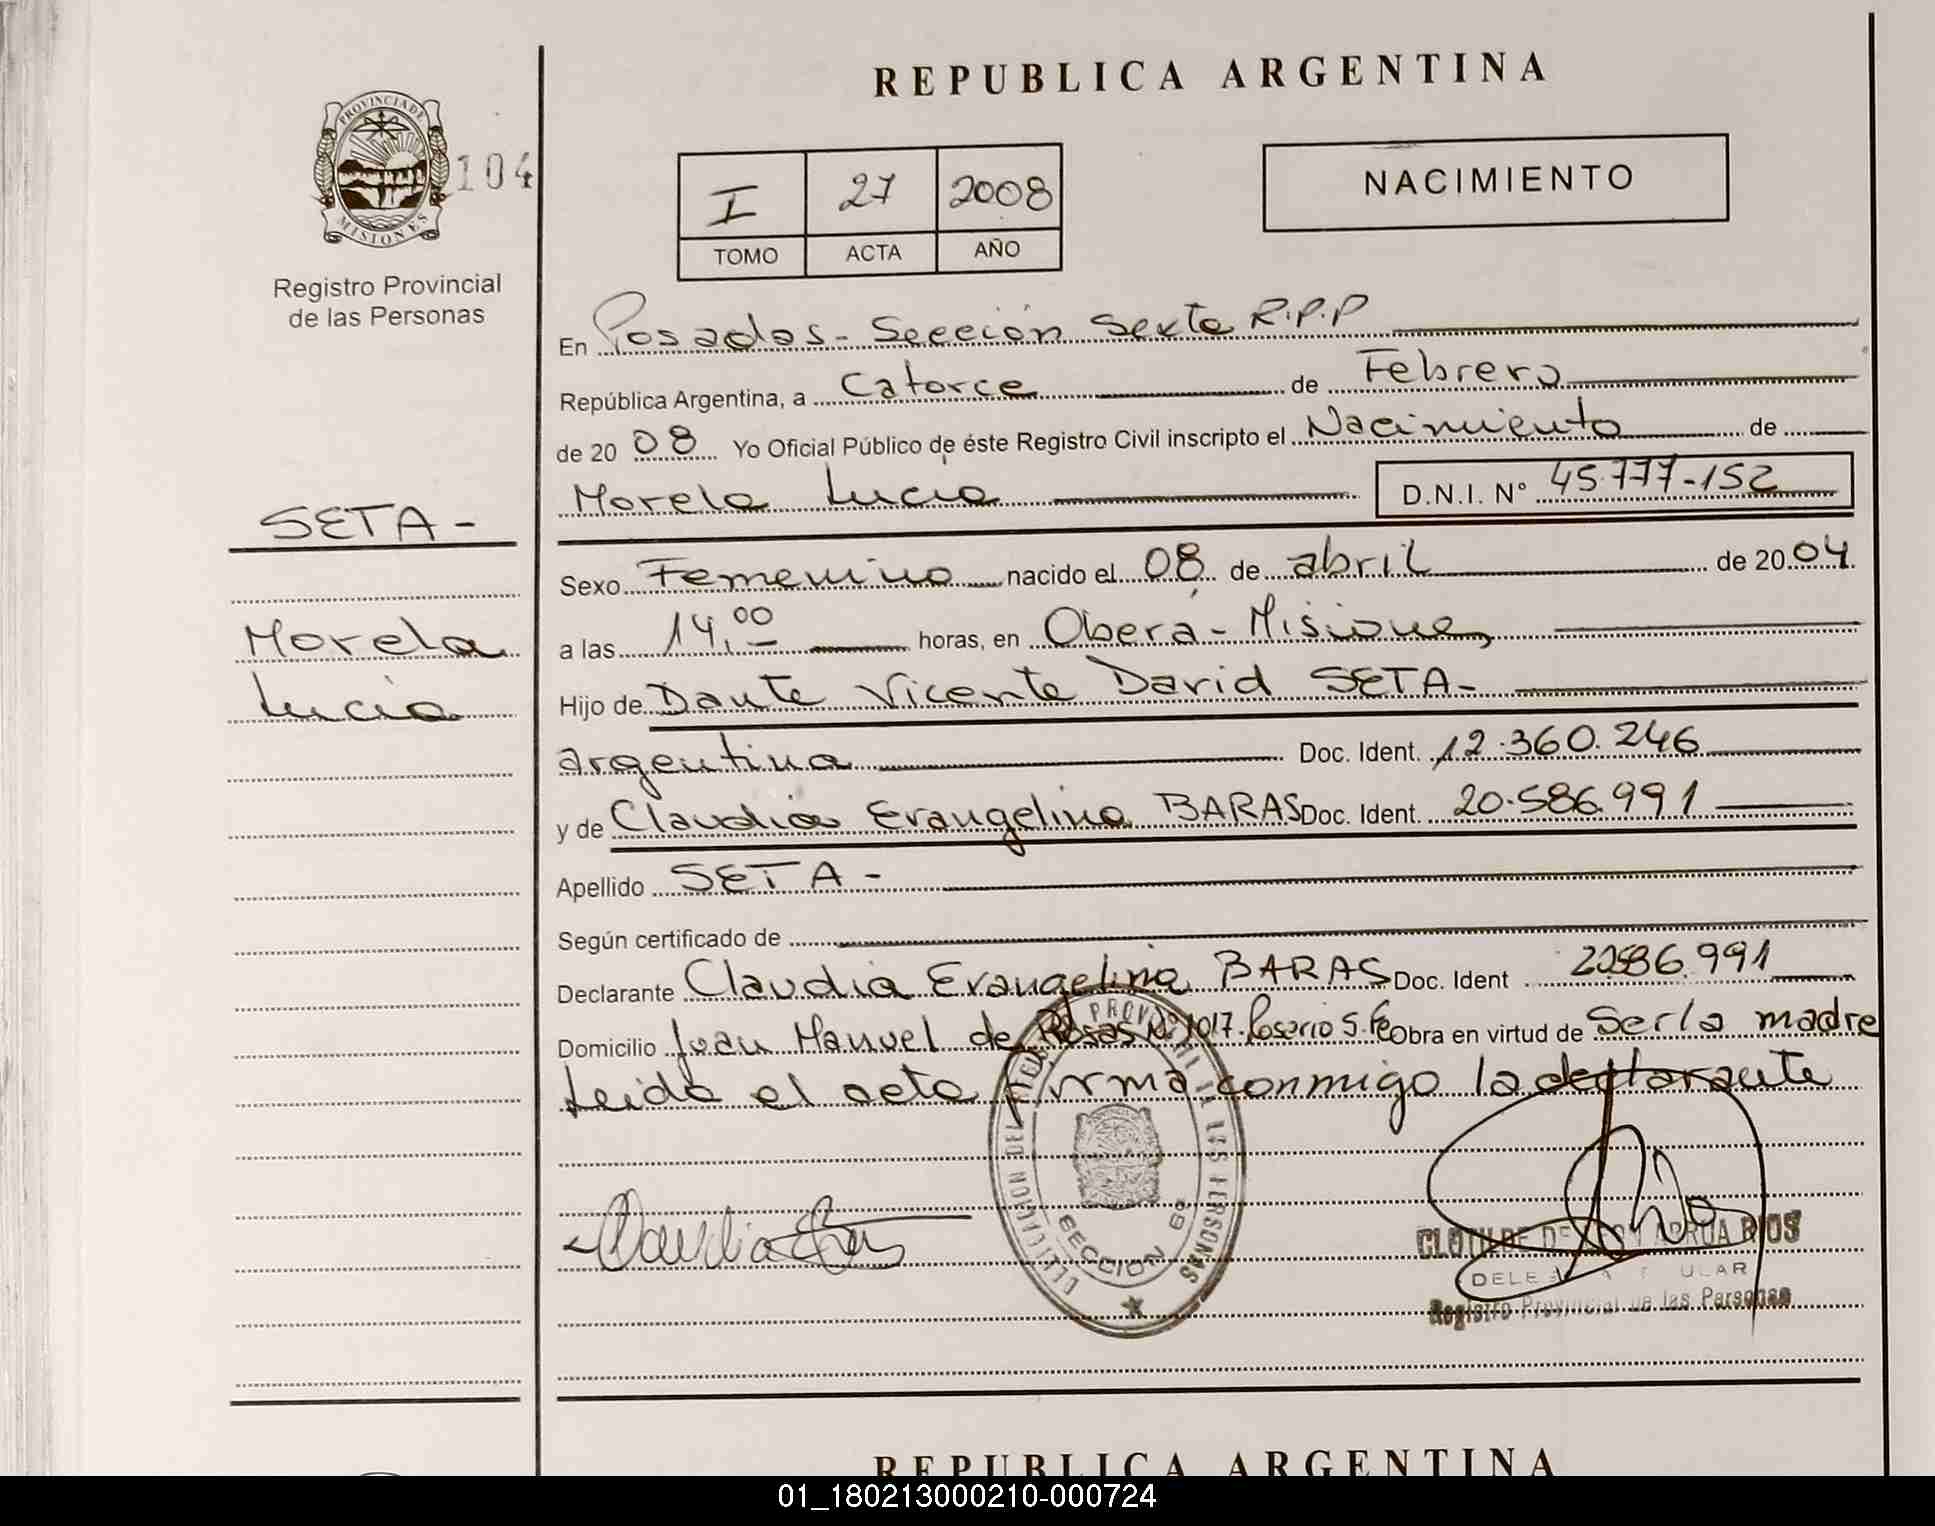 REPUBLICA ARGENTINA
PROVINCIA DE
MISIONES
104
Registro Provincial
de las Personas
I 27 2008
TOMO ACTA AÑO
NACIMIENTO
En Posadas - Sección Sexta R.P.P
República Argentina, a Catorce de Febrero
de 2008 Yo Oficial Público de éste Registro Civil inscripto el Nacimiento de
Morela Lucia D.N.I. N° 45.777-152
SETA -
Morela
Lucia
Sexo Femenino nacido el 08 de abril de 2004
a las 14,00 horas, en Oberá - Misiones
Hijo de Dante Vicente David SETA -
argentina Doc. Ident. 12.360.246
y de Claudia Evangelina BARAS Doc. Ident. 20.586.991
Apellido SETA -
Según certificado de
Declarante Claudia Evangelina BARAS Doc. Ident 20586.991
Domicilio Juan Manuel de Rosas N° 1017. Rosario S. Fe Obra en virtud de Ser la madre
Leida el acta firma conmigo la declarante
SECCION 6ª
CLOTILDE DE ARRUA RIOS
DELEGADA TITULAR
Registro Provincial de las Personas
REPUBLICA ARGENTINA
01_180213000210-000724